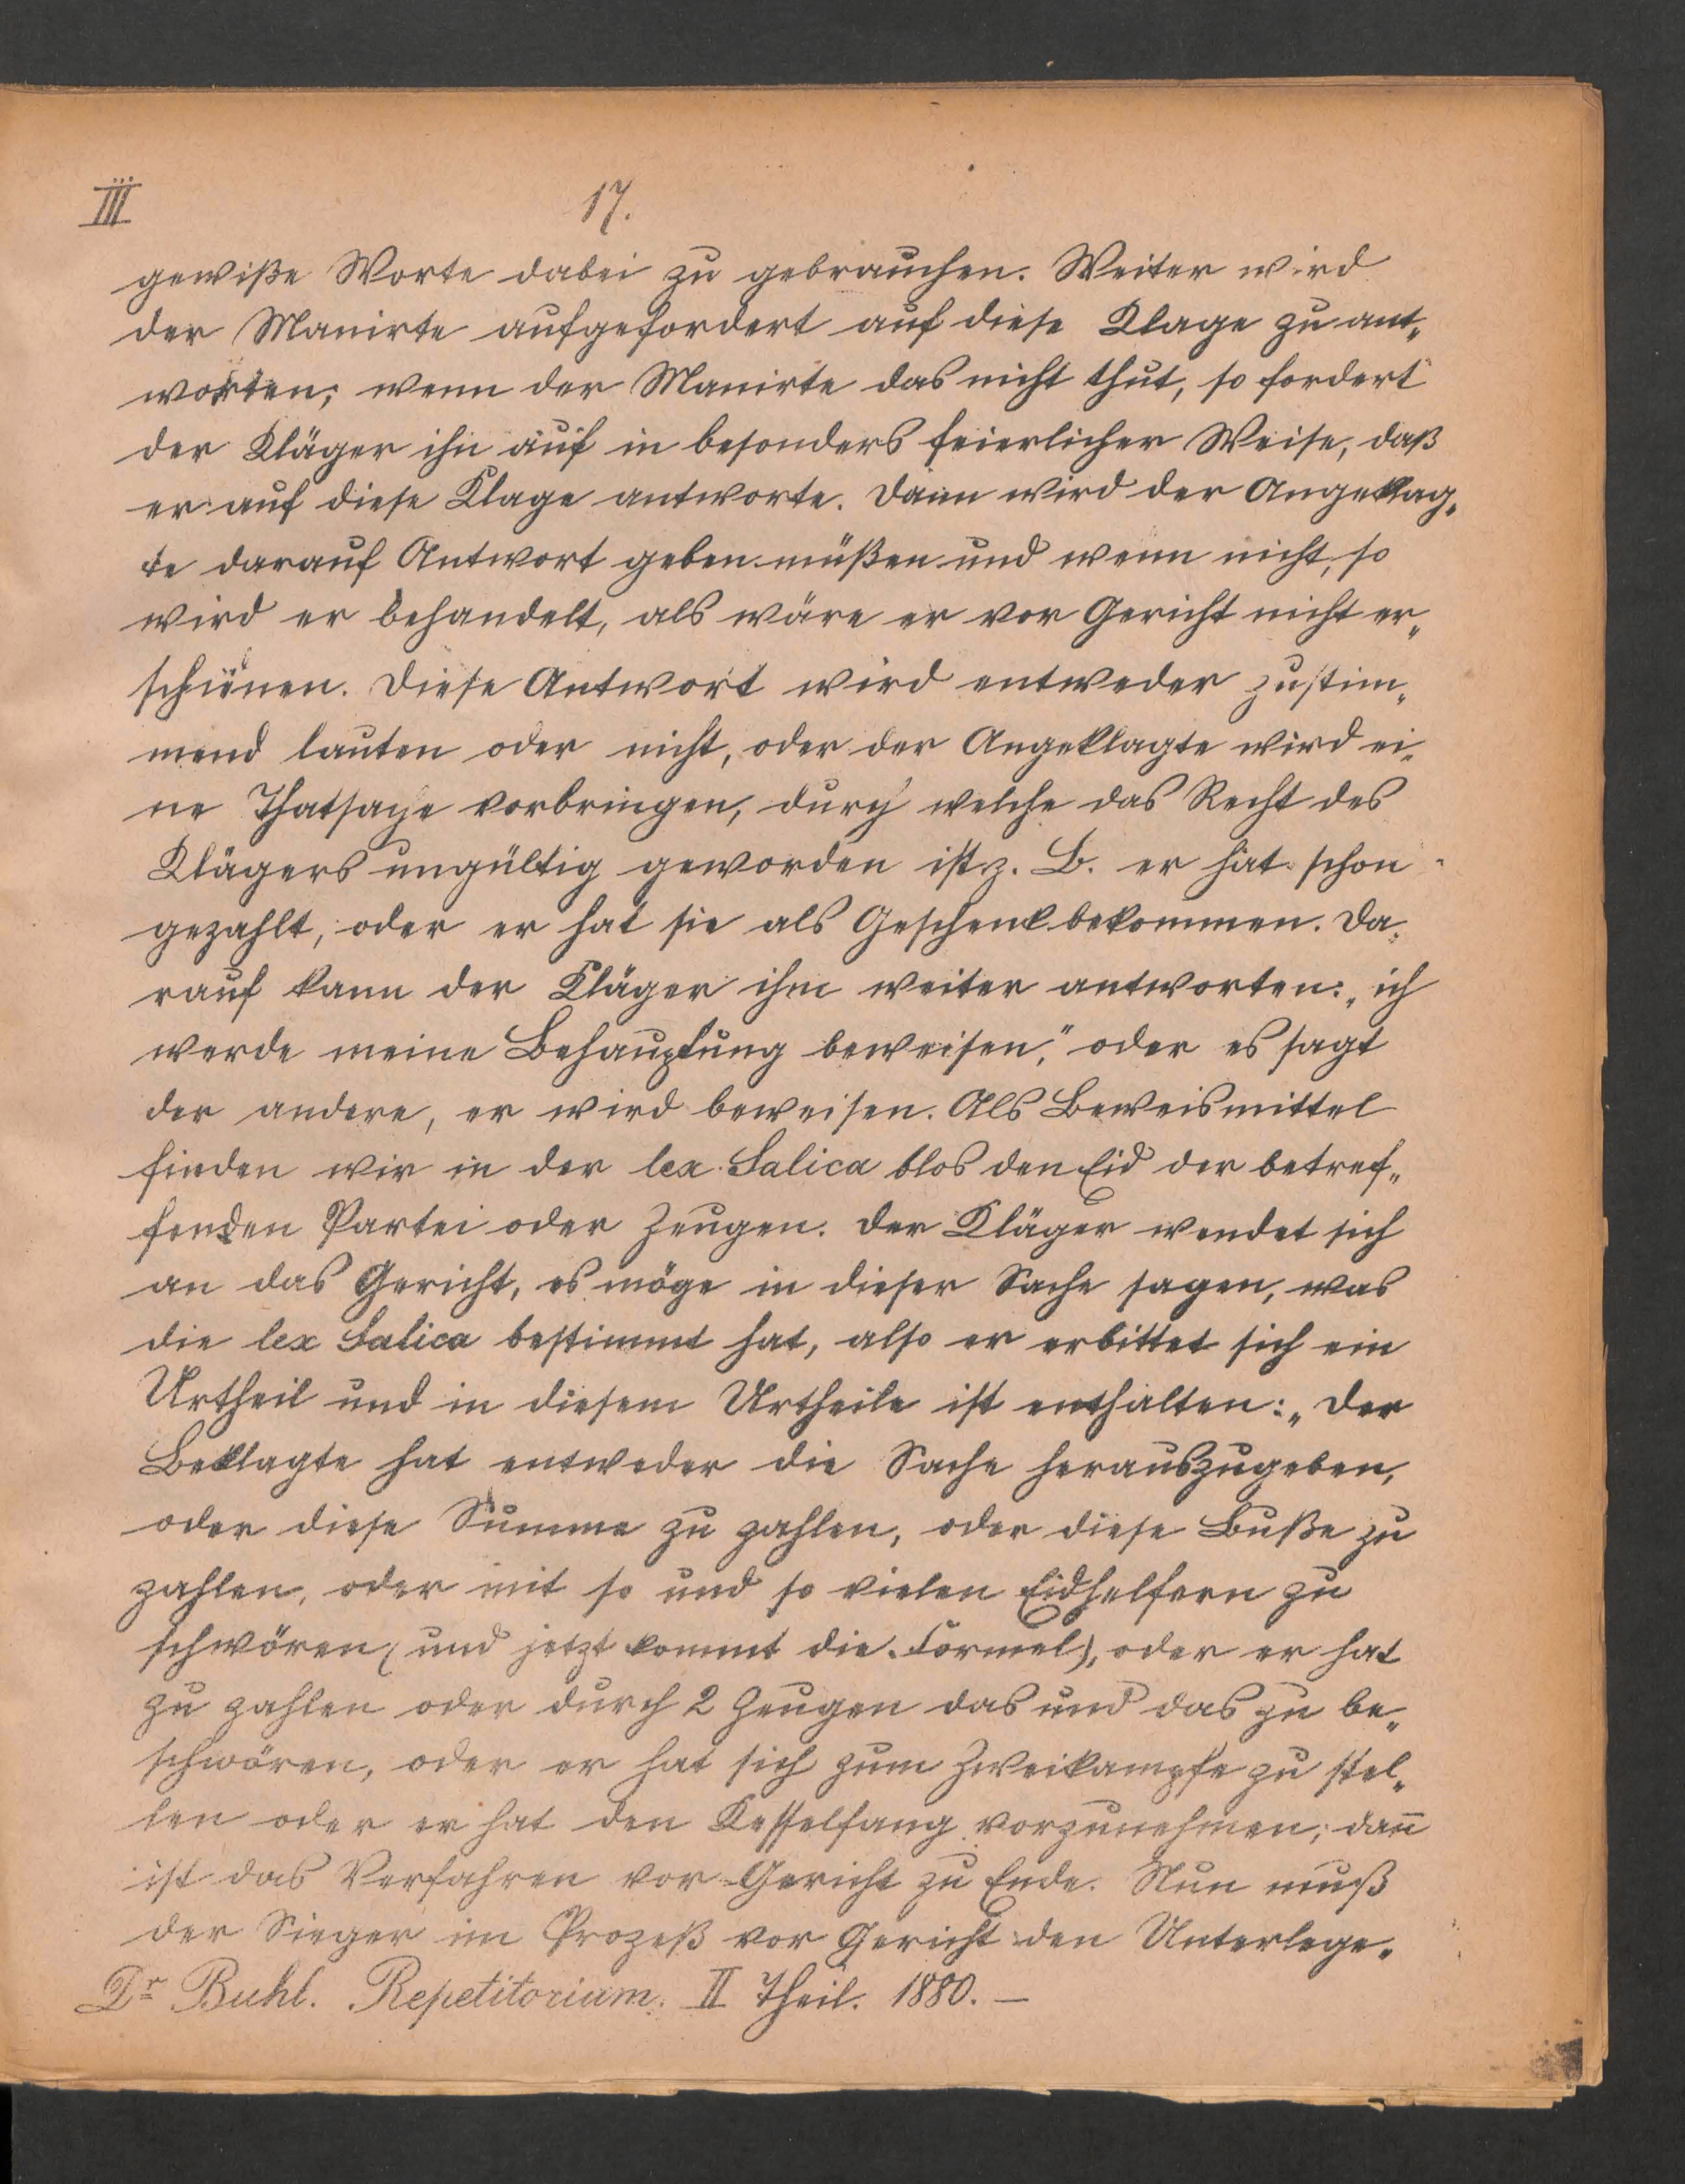 III
17.
gewiße Worte dabei zu gebrauchen. Weiter wird
der Manirte aufgefordert auf diese Klage zu ant„
worten; wenn der Manirte das nicht thut, so fordert
der Kläger ihn auf in besonders feierlicher Weise, daß
er auf diese Klage antworte. Dann wird der Angeklag„
te darauf Antwort geben müßen und wenn nicht, so
wird er behandelt, als wäre er vor Gericht nicht er„
schienen. Diese Antwort wird entweder zustim„
mend lauten oder nicht, oder der Angeklagte wird ei„
ne Thatsache vorbringen, durch welche das Recht des
Klägers ungültig geworden ist z. B. er hat schon
gezahlt, oder er hat sie als Geschenk bekommen. Da„
rauf kann der Kläger ihm weiter antworten: „ich
werde meine Behauptung beweisen," oder es sagt
der andere, er wird beweisen. Als Beweismittel
finden wir in der lex Salica blos den Eid der betref„
fenden Partei oder Zeugen. Der Kläger wendet sich
an das Gericht, es möge in dieser Sache sagen, was
die lex Salica bestimmt hat, also er erbittet sich ein
Urtheil und in diesem Urtheile ist enthalten: „Der
Beklagte hat entweder die Sache herauszugeben,
oder diese Summe zu zahlen, oder diese Buße zu
zahlen, oder mit so und so vielen Eidhelfern zu
schwören (und jetzt kommt die Formel), oder er hat
zu zahlen oder durch 2 Zeugen das und das zu be„
schwören, oder er hat sich zum Zweikampfe zu stel„
len oder er hat den Kesselfang vorzunehmen; dan̄
ist das Verfahren vor Gericht zu Ende. Nun muß
der Sieger im Prozeß vor Gericht den Unterlege„
Dr Buhl. Repetitorium. II Theil. 1880. —